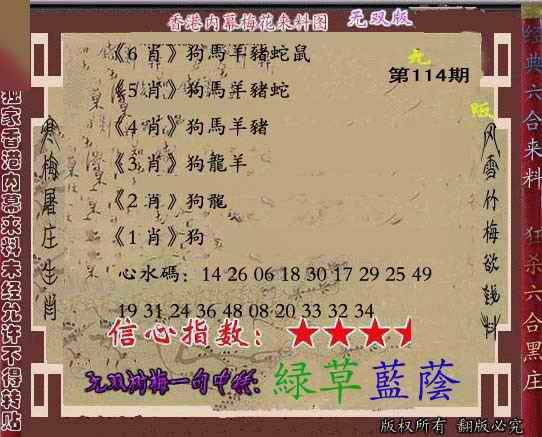 香港内幕梅花来料图 无双版
《6 肖》狗馬羊豬蛇鼠
第114期
《5 肖》狗馬羊豬蛇
《4 肖》狗馬羊豬
《3 肖》狗龍羊
《2 肖》狗龍
《1 肖》狗
心水碼：14 26 06 18 30 17 29 25 49
19 31 24 36 48 08 20 33 32 34
信心指数：
緑草藍蔭
版权所有 翻版必究
独家香港内幕来料未经允许不得转贴
寒梅屠庄生肖
经典六合来料
狂杀六合黑庄